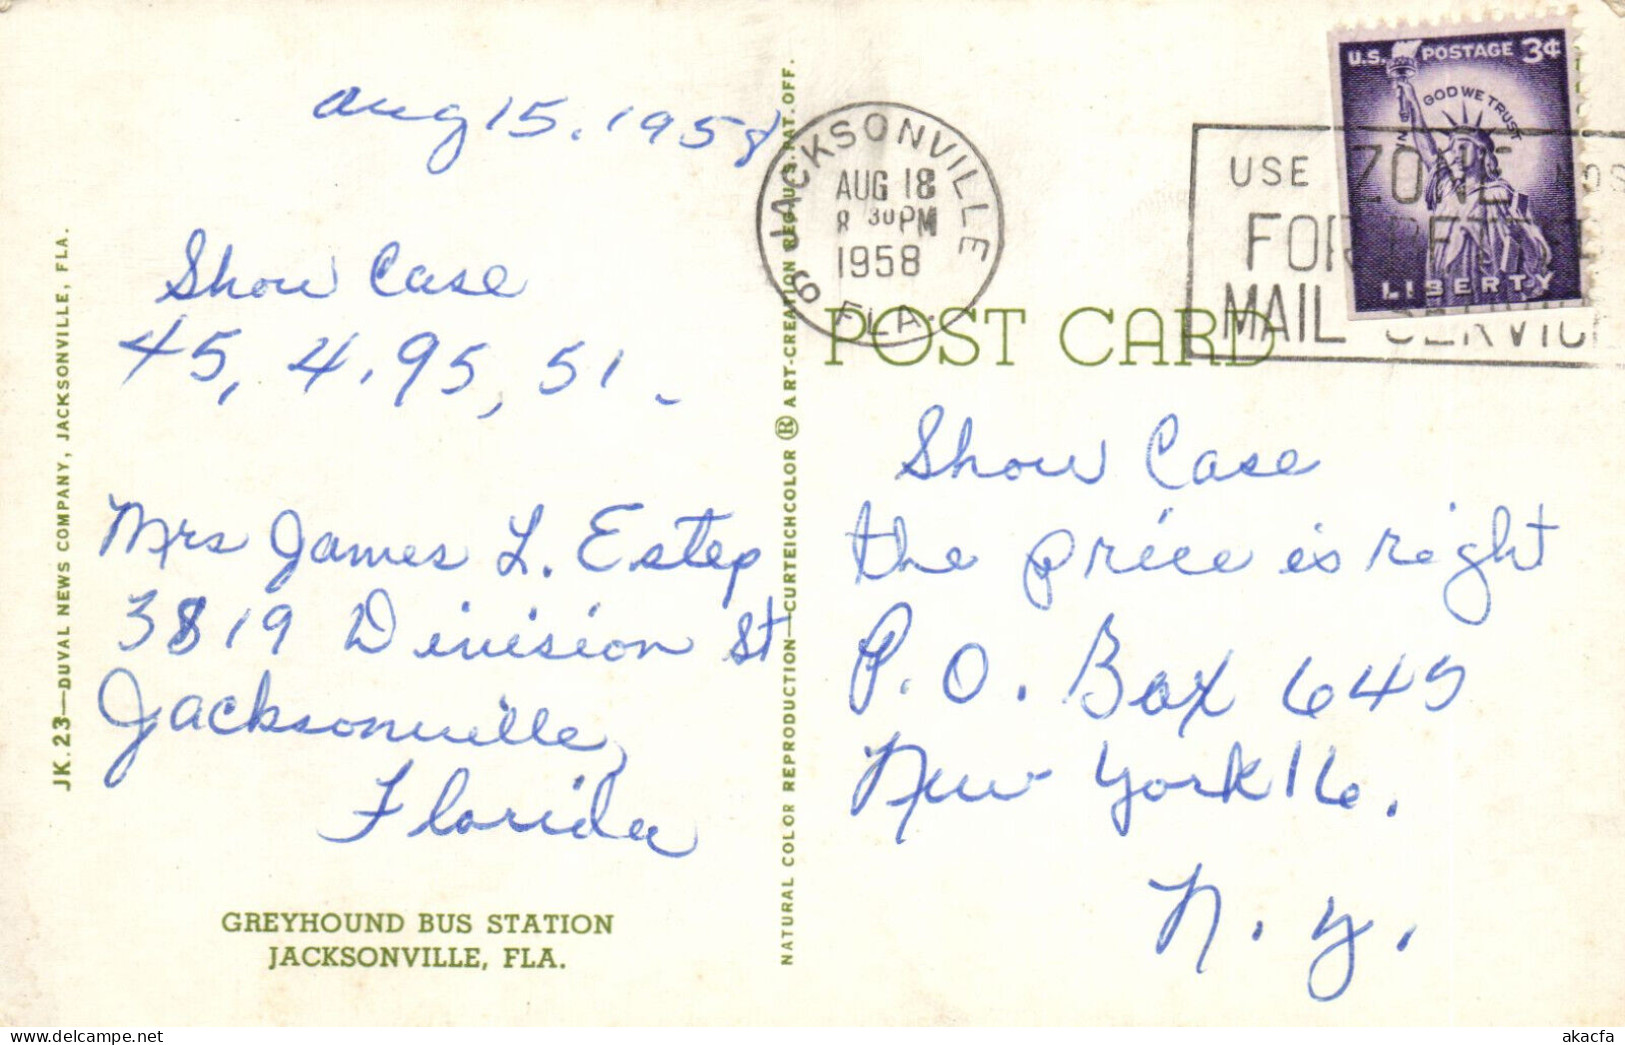 aug 15. 1958
Show Case
45, 4.95, 51.
Mrs James L. Estep
3819 Division St
Jacksonville,
Florida
GREYHOUND BUS STATION
JACKSONVILLE, FLA.
JK.23—DUVAL NEWS COMPANY, JACKSONVILLE, FLA.
NATURAL COLOR REPRODUCTION—CURTEICHCOLOR ® ART-CREATION REG. U.S. PAT. OFF.
JACKSONVILLE
AUG 18
8 30 PM
1958
FLA.
U.S. POSTAGE 3¢
IN GOD WE TRUST
LIBERTY
USE ZONE NOS
FOR
MAIL SERVICE
POST CARD
Show Case
the price is right
P. O. Box 645
New York 16.
N. y.
delcampe.net
akacfa